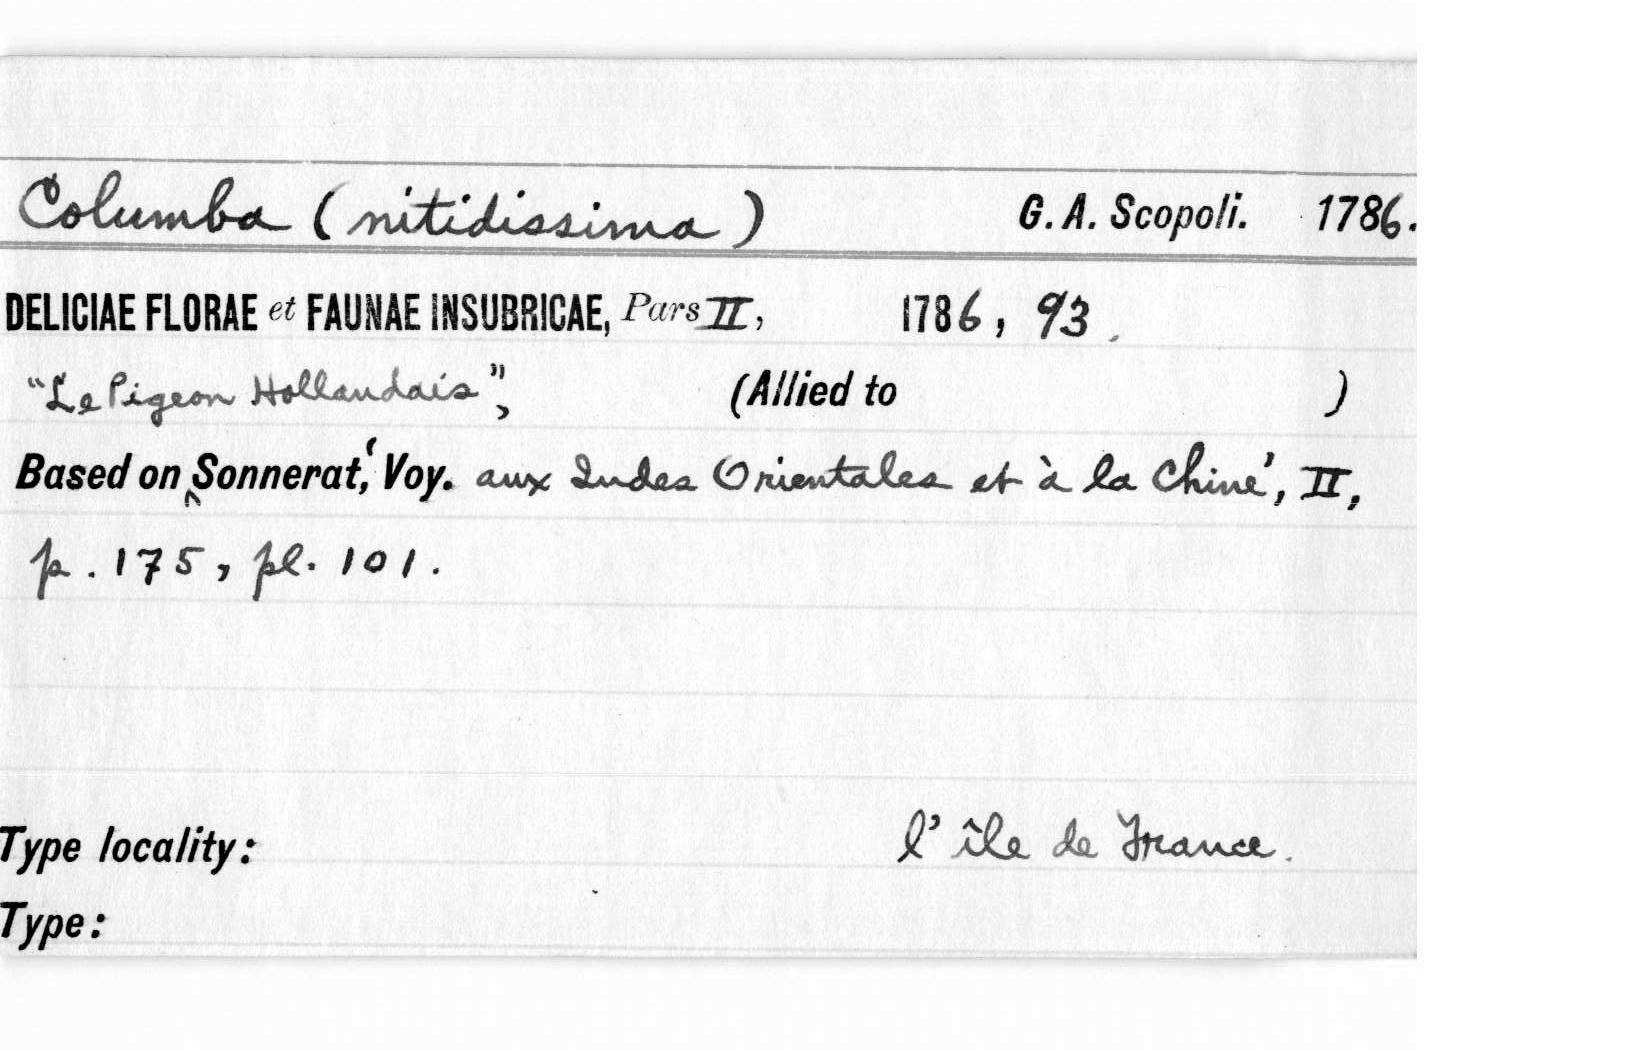 Columba (nitidissima) G. A. Scopoli. 1786.
DELICIAE FLORAE et FAUNAE INSUBRICAE, Pars II, 1786, 93.
"Le Pigeon Hollandais", (Allied to )
Based on Sonnerat, 'Voy. aux Indes Orientales et à la Chine', II,
p. 175, pl. 101.
Type locality: l'île de France.
Type: